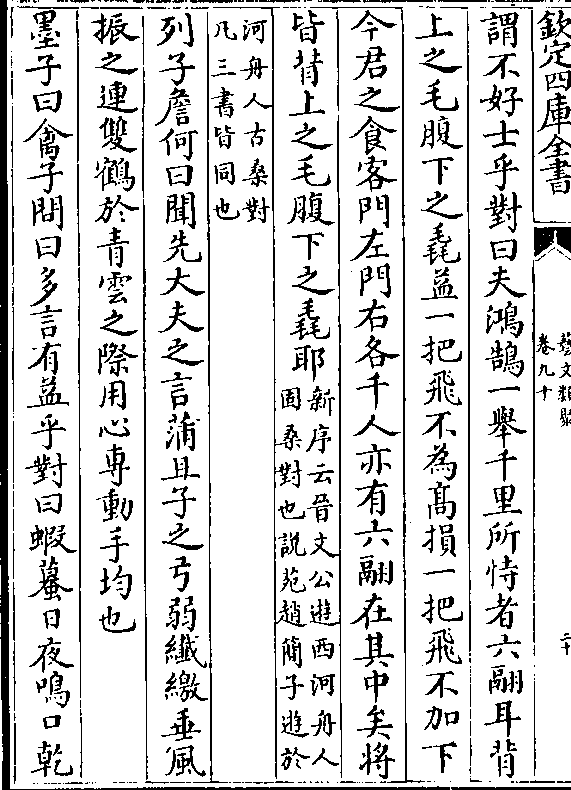 欽定四庫全書
藝文類聚
卷九十
二十
謂不好士乎對曰夫鴻鵠一舉千里所恃者六翮耳背
上之毛腹下之毳益一把飛不為髙損一把飛不加下
今君之食客門左門右各千人亦有六翮在其中矣將
皆背上之毛腹下之毳耶新序云晉文公遊西河舟人
固桑對也説苑趙簡子遊於
河舟人古桑對
凡三書皆同也
列子詹何曰聞先大夫之言蒲且子之弓弱纖繳乗風
振之連雙鶴於青雲之際用心専動手均也
墨子曰禽子問曰多言有益乎對曰蝦蟇日夜鳴口乾